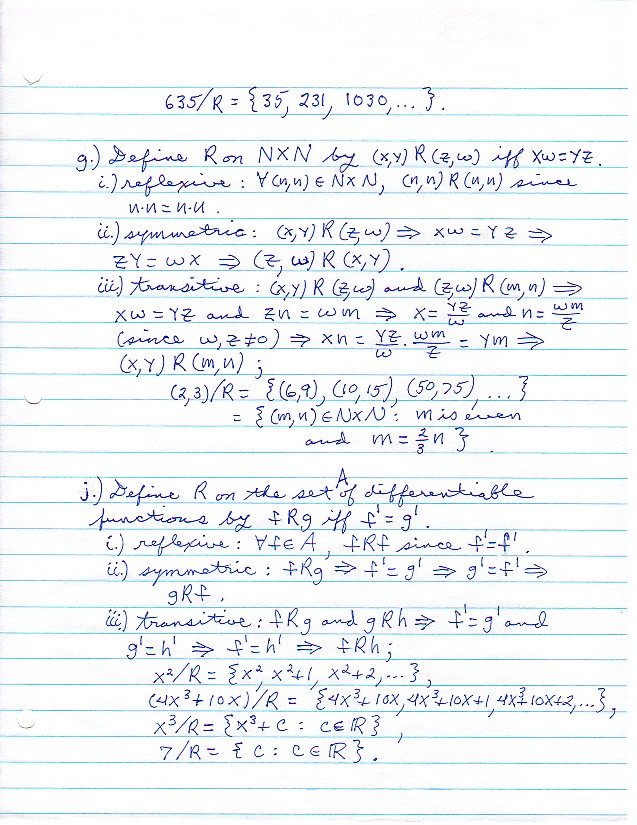 635/R = {35, 231, 1030, ... }.
g.) Define R on N×N by (x,y) R (z,w) iff xw=yz.
i.) reflexive : ∀(n,n) ∈ N×N, (n,n) R (n,n) since
n·n = n·n .
ii.) symmetric : (x,y) R (z,w) ⇒ xw = yz ⇒
zy = wx ⇒ (z,w) R (x,y) .
iii.) transitive : (x,y) R (z,w) and (z,w) R (m,n) ⇒
xw = yz and zn = wm ⇒ x = yz/w and n = wm/z
(since w,z ≠ 0) ⇒ xn = yz/w · wm/z = ym ⇒
(x,y) R (m,n) ;
(2,3)/R = {(6,9), (10,15), (50,75), ... }
= {(m,n) ∈ N×N : m is even
and m = 2/3 n }
j.) Define R on the set A of differentiable
functions by fRg iff f' = g' .
i.) reflexive : ∀f∈A, fRf since f'=f' .
ii.) symmetric : fRg ⇒ f'=g' ⇒ g'=f' ⇒
gRf .
iii.) transitive : fRg and gRh ⇒ f'=g' and
g'=h' ⇒ f'=h' ⇒ fRh ;
x²/R = {x², x²+1, x²+2, ... },
(4x³+10x)/R = {4x³+10x, 4x³+10x+1, 4x³+10x+2, ...},
x³/R = {x³+c : c∈ℝ} ,
7/R = { c : c∈ℝ} .